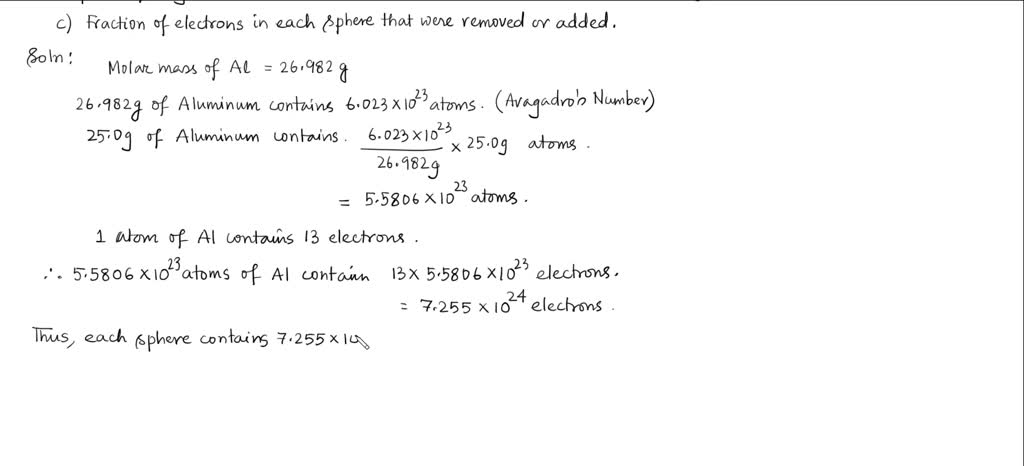 c) Fraction of electrons in each sphere that were removed or added.
Soln:
Molar mass of Al = 26.982 g
26.982g of Aluminum contains 6.023 × 10^23 atoms. (Avagadro's Number)
25.0g of Aluminum contains. 6.023 × 10^23 / 26.982g × 25.0g atoms.
= 5.5806 × 10^23 atoms.
1 atom of Al contains 13 electrons.
∴ 5.5806 × 10^23 atoms of Al contain 13 × 5.5806 × 10^23 electrons.
= 7.255 × 10^24 electrons.
Thus, each sphere contains 7.255 × 10